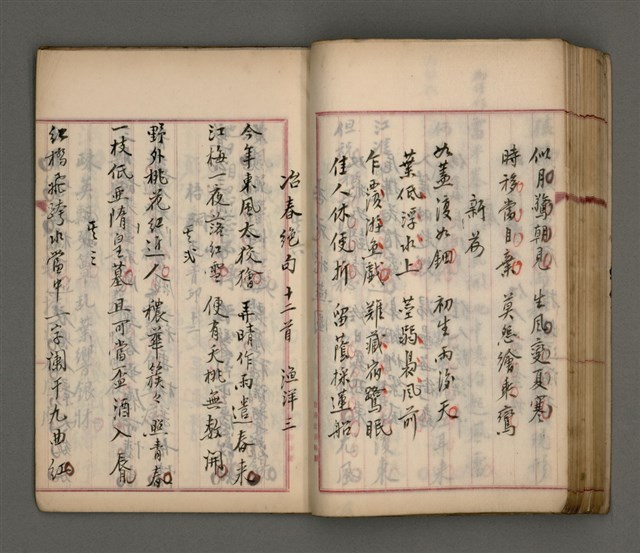 似月驚朝見 生風變夏寒
時移當自棄 莫怨繪乘鸞
新荷
如蓋復如鈿 初生雨後天
葉低浮水上 莖弱裊風前
乍覆游魚戲 難藏宿鷺眠
佳人休便折 留蔭採蓮船
冶春絕句 十二首 漁洋三
今年東風太狡獪 弄晴作雨遣春來
江梅一夜落紅雪 便有夭桃無數開
其弍
野外桃花紅近人 穠華簇々照青春
一枝低亞隋皇墓 且可當盃酒入唇
其三
紅橋飛跨水當中 一字闌干九曲紅